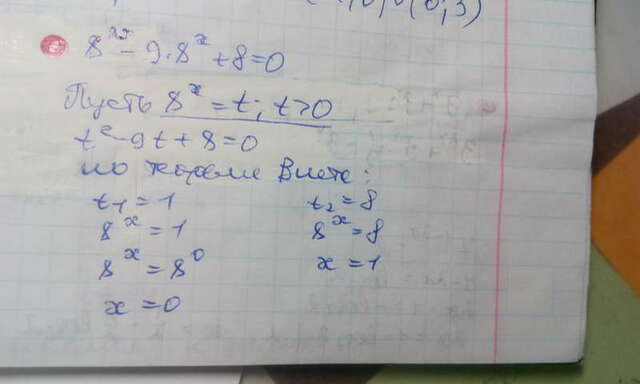 8^2x - 9·8^x + 8 = 0
Пусть 8^x = t; t > 0
t^2 - 9t + 8 = 0
по теореме Виета:
t₁ = 1 t₂ = 8
8^x = 1 8^x = 8
8^x = 8^0 x = 1
x = 0